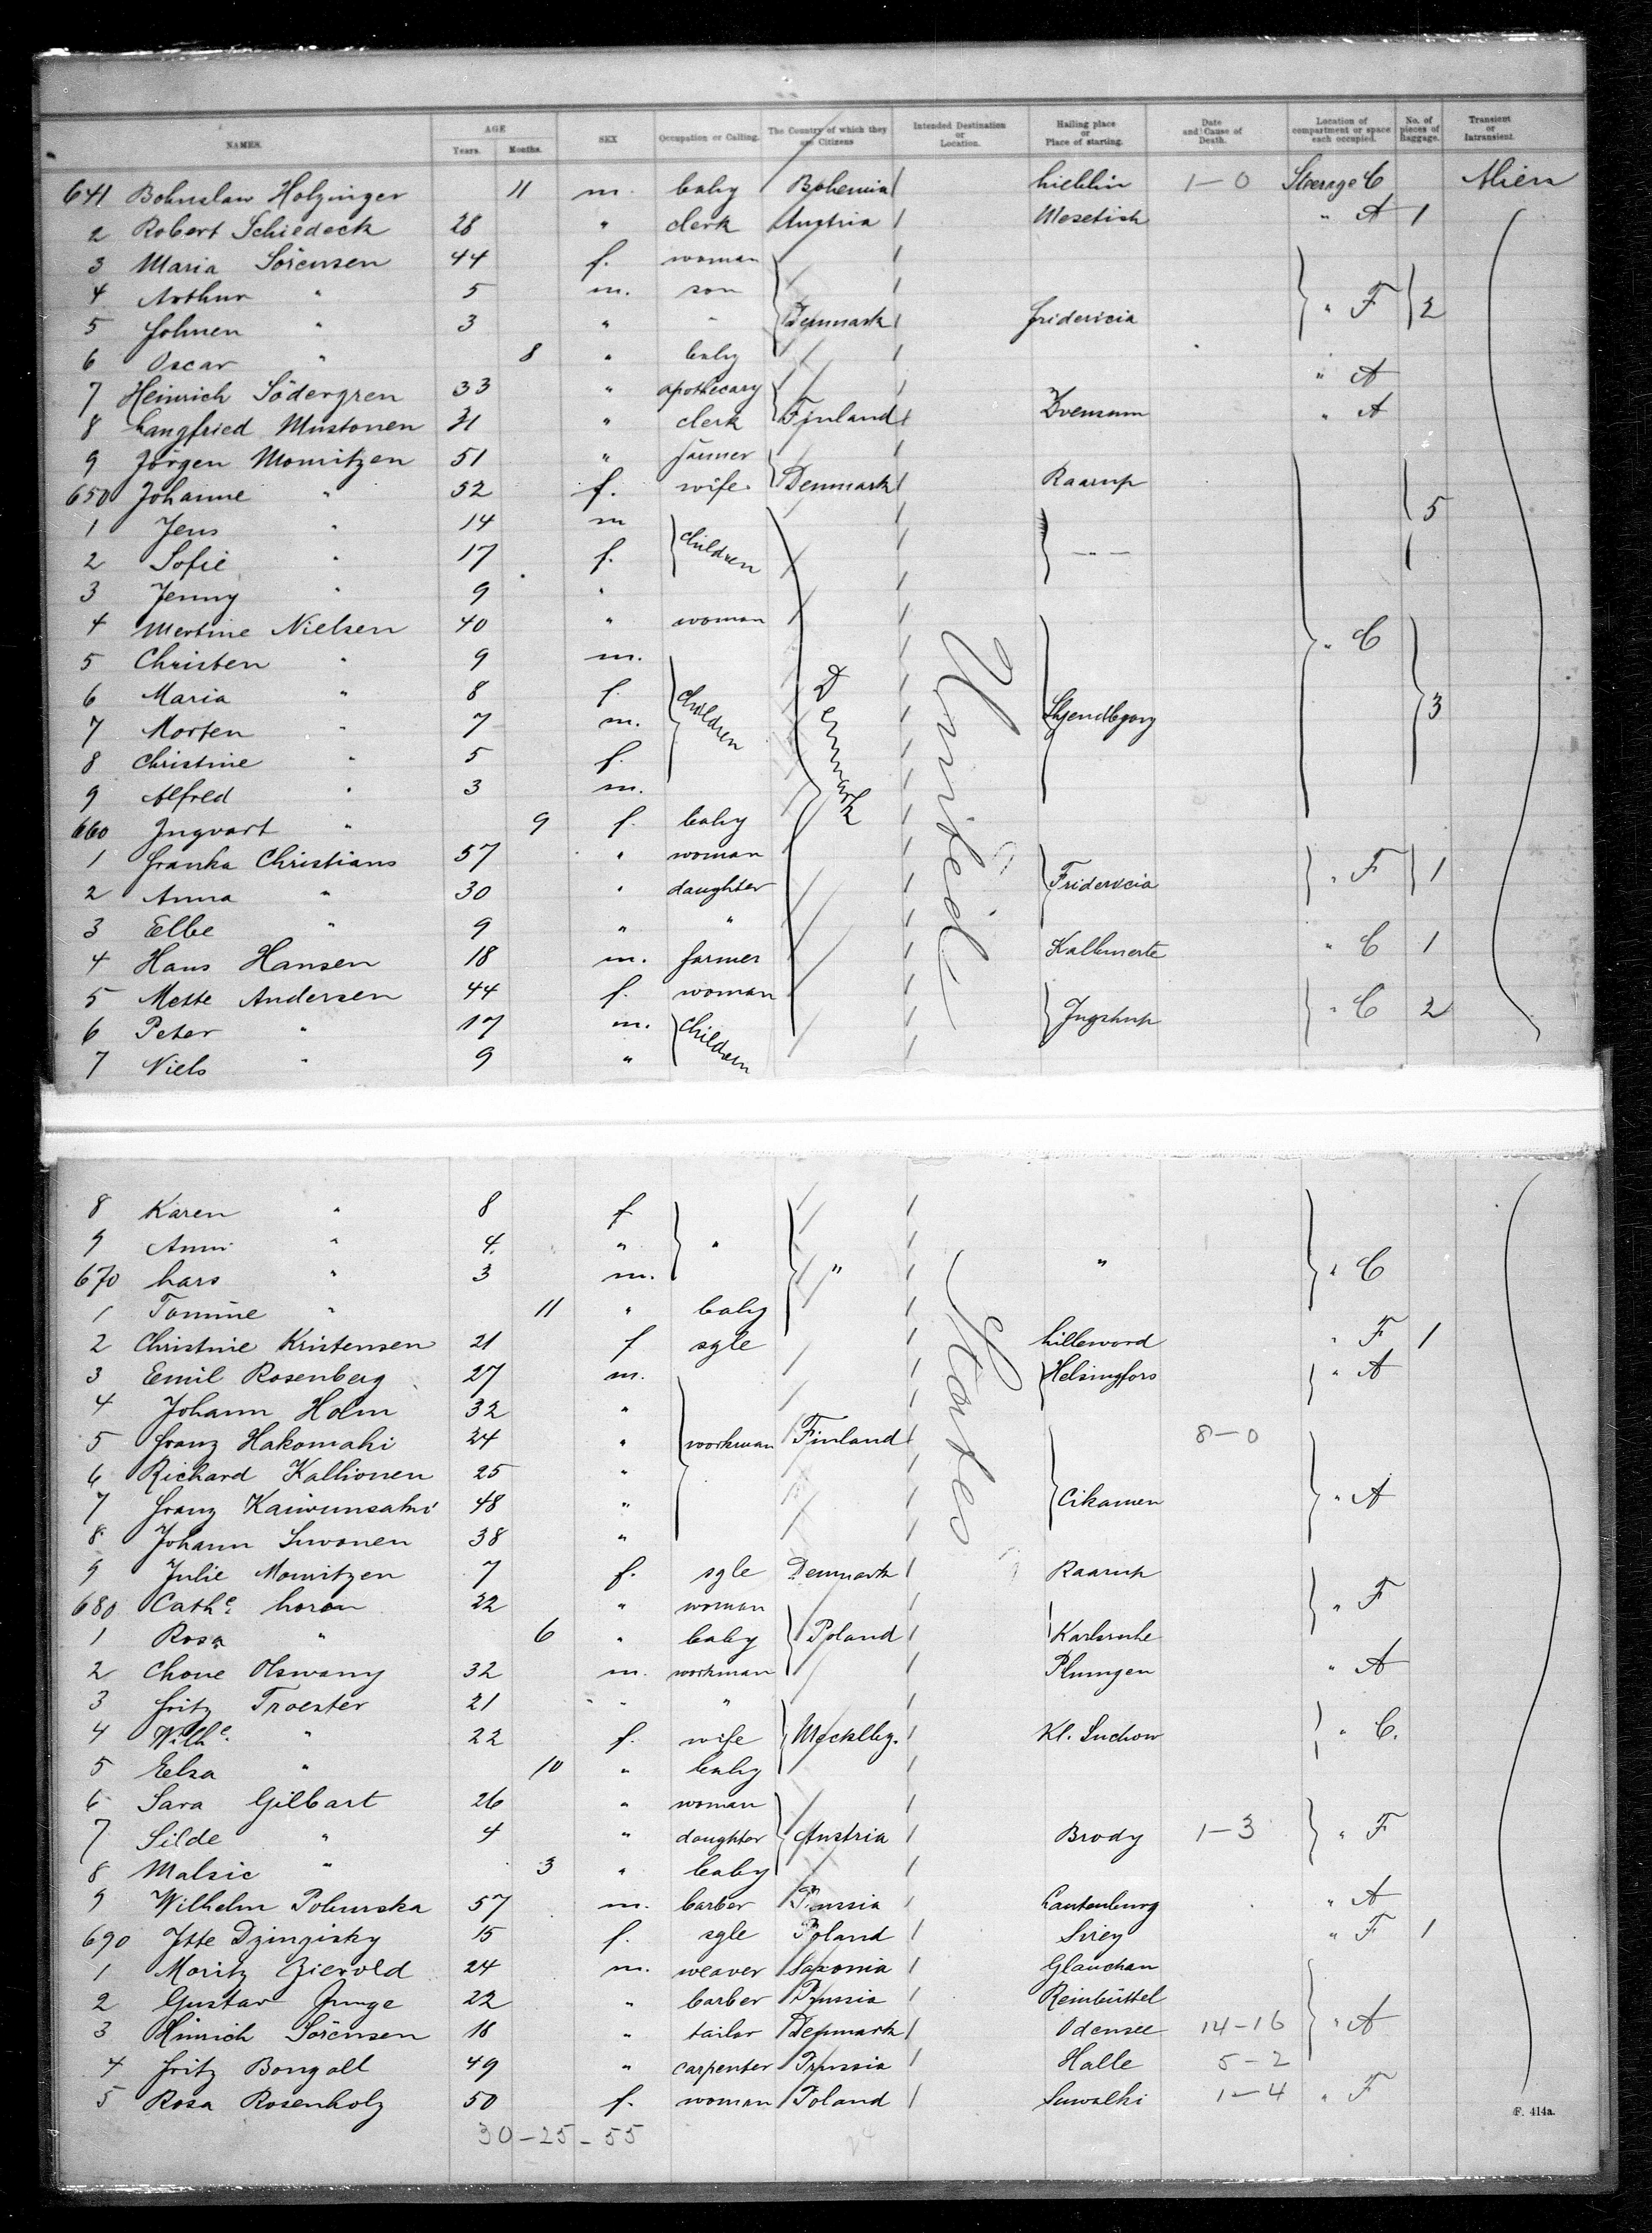 NAMES. AGE Years. Months. SEX Occupation or Calling. The Country of which they are Citizens Intended Destination or Location. Hailing place or Place of starting. Date and Cause of Death. Location of compartment or space each occupied. No. of pieces of Baggage. Transient or Intransient.
641 Bohuslaw Holzinger 11 m. baby Bohemia 1-0 Steerage C Alien
2 Robert Schiedeck 28 " clerk Austria Mesetish " A 1
3 Maria Sörensen 44 f. woman
4 Arthur " 5 m. son " F 2
5 " 3 " " Denmark Fridericia
6 Oscar " 8 " baby
7 Heinrich Södergren 33 " apothecary " A
8 Langfried Mustonen 31 " clerk Finland " A
9 Jörgen Momitzen 51 " farmer
650 Johanne " 52 f. wife Denmark Raarup
1 Jens " 14 m children 5
2 Sofie " 17 f. — " —
3 Jenny " 9 "
4 Mertine Nielsen 40 " woman " C
5 Christen " 9 m.
6 Maria " 8 f. children Denmark 3
7 Morten " 7 m.
8 Christine " 5 f.
9 Alfred " 3 m.
660 Ingvart " 9 f. baby United
1 Franka Christians 57 " woman " F 1
2 Anna " 30 " daughter Fridericia
3 Elbe " 9 " "
4 Hans Hansen 18 m. farmer Kallmerte " C 1
5 Mette Andersen 44 f. woman " C 2
6 Peter " 17 m. children
7 Niels " 9 "
8 Karen " 8 f
9 Anni " 4. " "
670 Lars " 3 m. " " " C
1 Tomine " 11 " baby
2 Christine Kristensen 21 f sgle " F 1
3 Emil Rosenberg 27 m. Helsingfors " A
4 Johann Holm 32 " States
5 Franz Hakomaki 24 " workman Finland 8-0
6 Richard Kallionen 25 "
7 Franz 48 " Cikamen " A
8 Johann Suvonen 38 "
9 Julie Momitzen 7 f. sgle Denmark Raarup
680 Cathe. Loron 22 " woman " F
1 Rosa " 6 " baby Poland Karlsruhe
2 Chone Olswang 32 m. workman Plungen " A
3 Fritz Troester 21 " "
4 Wilhe. " 22 f. wife Mecklbg. Kl. Luckow " C.
5 Elsa " 10 " baby
6 Sara Gilbart 26 " woman
7 Silde " 4 " daughter Austria Brody 1-3 " F
8 Malsie " 3 " baby
9 Wilhelm 57 m. barber Prussia Lautenburg " A
690 Itte Dzingisky 15 f. sgle Poland Sirey " F 1
1 Moritz Zierold 24 m. weaver Saxonia Glauchau
2 Gustav Junge 22 " barber Prussia Reinbüttel
3 Hinrich Sörensen 18 " tailor Denmark Odensee 14-16 " A
4 Fritz Bongall 49 " carpenter Prussia Halle 5-2
5 Rosa Rosenholz 50 f. woman Poland Suwalki 1-4 " F
F. 414a.
30-25-55